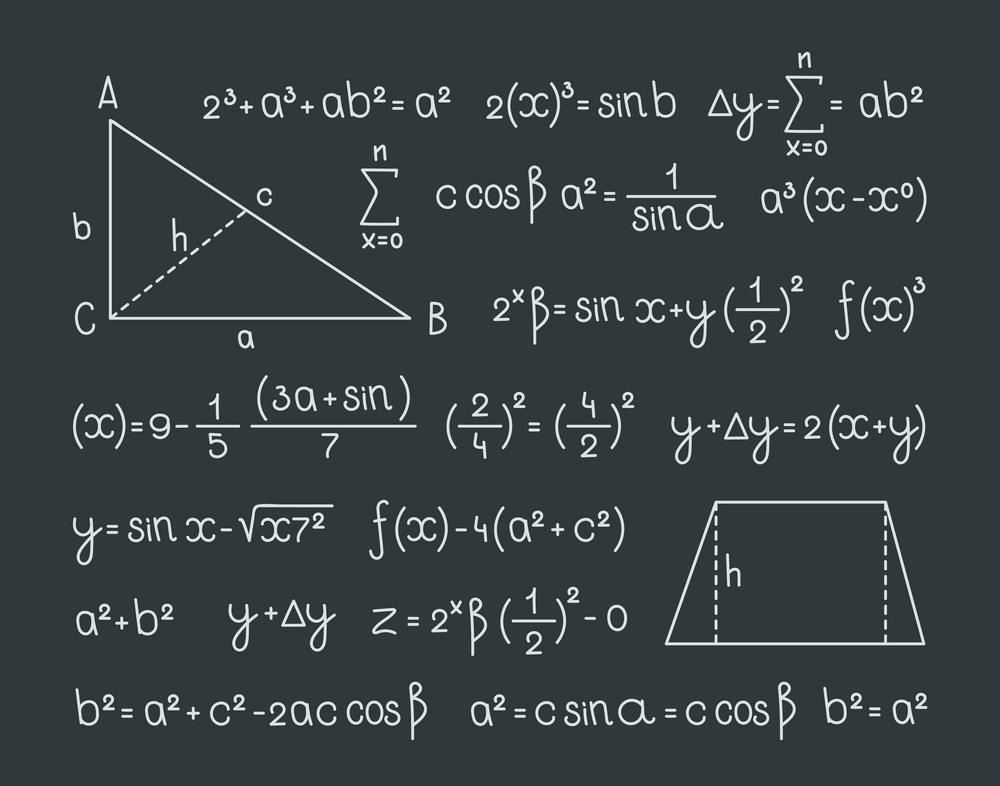 A
2³+a³+ab²=a² 2(x)³=sinb Δy=∑ⁿₓ₌₀=ab²
b h c ∑ⁿₓ₌₀ c cosβ a²=1/sin a a³(x-x⁰)
C a B 2ˣβ=sin x+y(1/2)² f(x)³
(x)=9-1/5 (3a+sin)/7 (2/4)²=(4/2)² y+Δy=2(x+y)
y=sin x-√x7² f(x)-4(a²+c²)
h
a²+b² y+Δy z=2ˣβ(1/2)²-0
b²=a²+c²-2ac cosβ a²=c sin a=c cosβ b²=a²